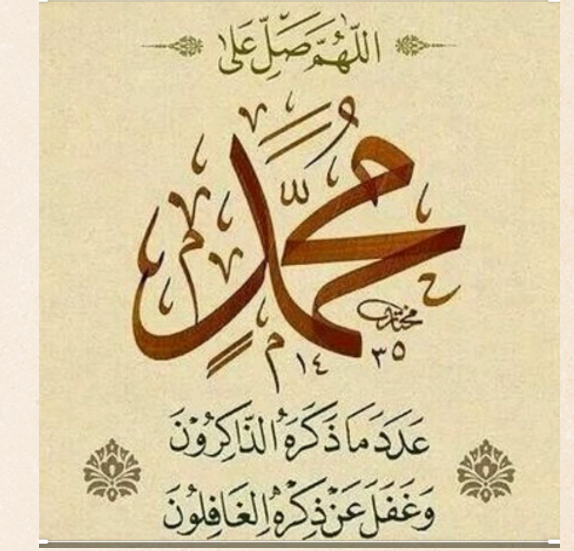 اللّٰهُمَّ صَلِّ عَلىٰ
مُحَمَّدٍ
مختار
١٤٣٥
عَدَدَ مَا ذَكَرَهُ الذَّاكِرُوْنَ
وَغَفَلَ عَنْ ذِكْرِهِ الْغَافِلُونَ